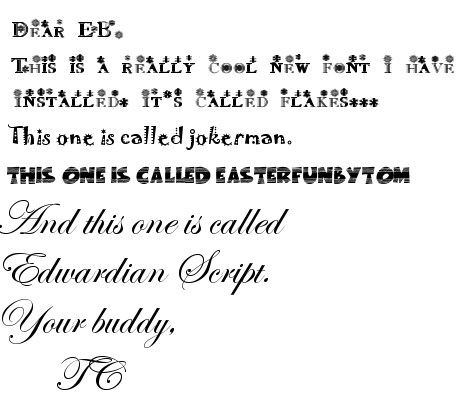 Dear EB.
This is a really cool new font i have
installed. it's called flakes...
This one is called jokerman.
THIS ONE IS CALLED EASTERFUNBYTOM
And this one is called
Edwardian Script.
Your buddy,
TC